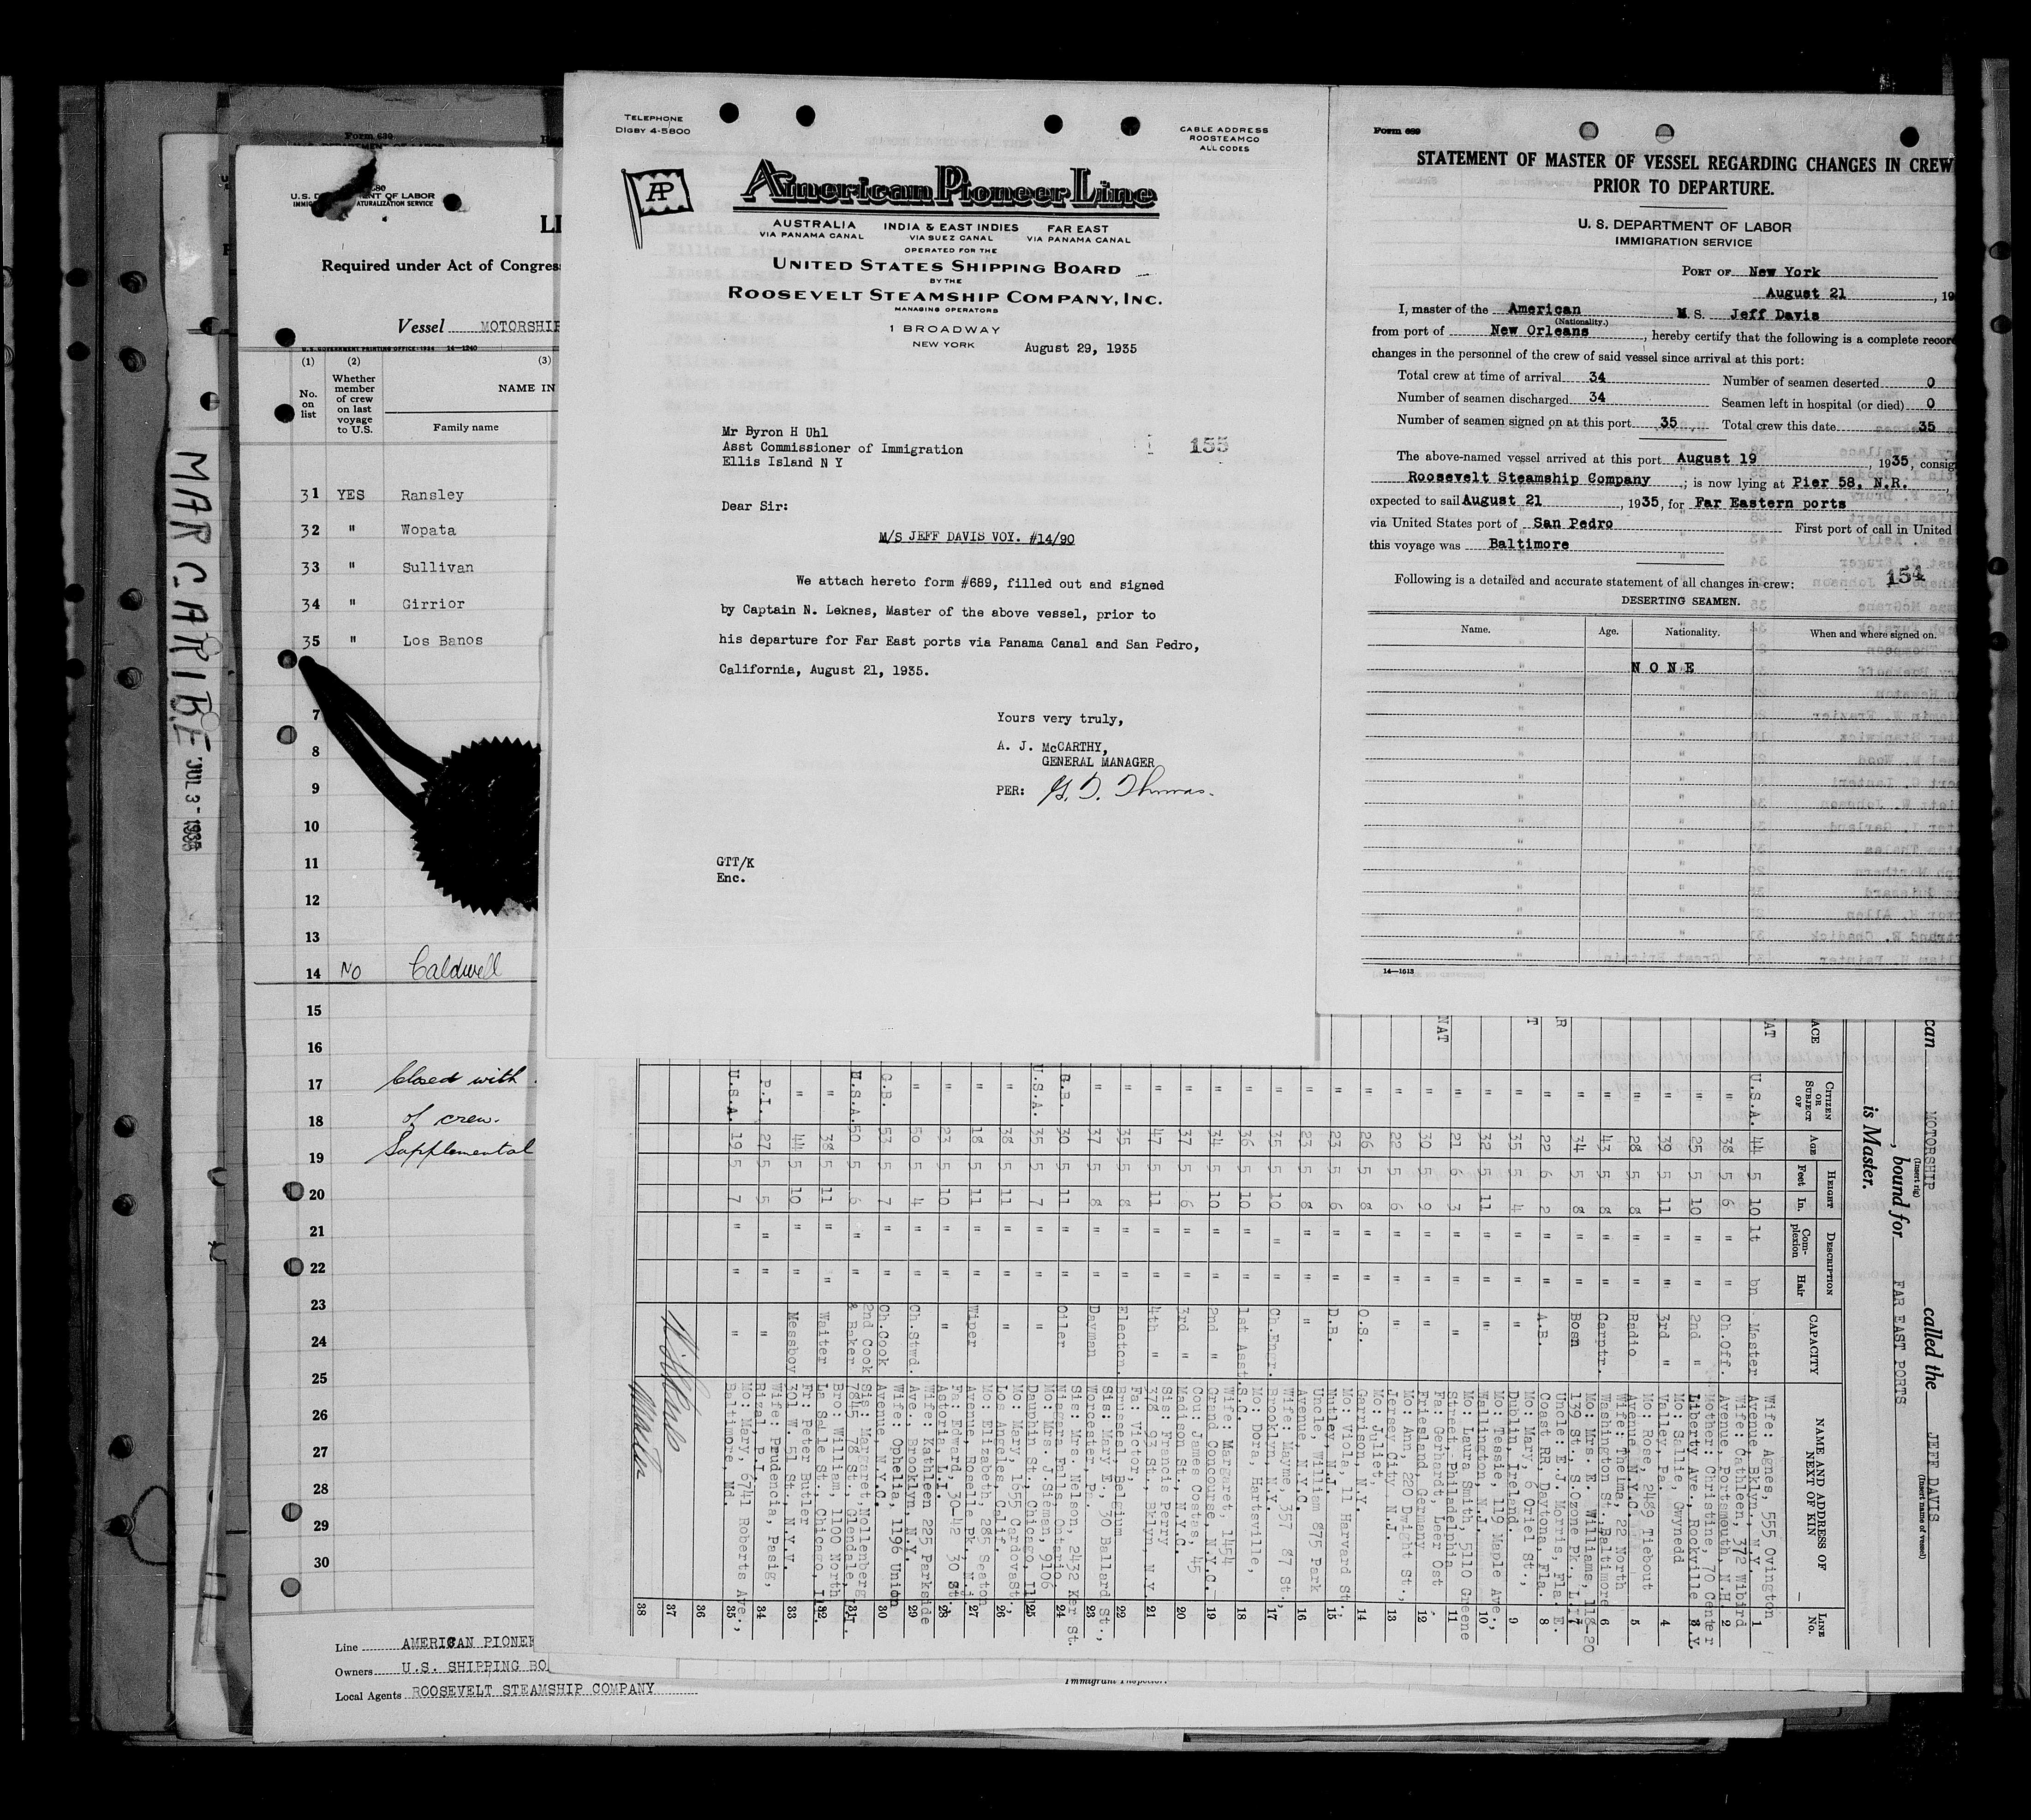 MAR CARIBE JUL 3 - 1935
Form 630
U. S. DEPARTMENT OF LABOR
Required under Act of Congres
Vessel MOTORSHIP
U. S. GOVERNMENT PRINTING OFFICE: 1934 14-1240
(1) (2) (3)
No. on list
Whether member of crew on last voyage to U.S.
NAME IN
Family name
31 YES Ransley
32 " Wopata
33 " Sullivan
34 " Girrior
35 " Los Banos
7
8
9
10
11
12
13
14 No Caldwell
15
16
17 Closed with
18 of crew.
19 Supplemental
20
21
22
23
24
25
26
27
28
29
30
Line AMERICAN PIONEE
Owners U.S. SHIPPING BO
Local Agents ROOSEVELT STEAMSHIP COMPANY
Immigrant Inspector.
TELEPHONE
DIGBY 4-5800
CABLE ADDRESS
ROOSTEAMCO
ALL CODES
AP
American Pioneer Line
AUSTRALIA INDIA & EAST INDIES FAR EAST
VIA PANAMA CANAL VIA SUEZ CANAL VIA PANAMA CANAL
OPERATED FOR THE
UNITED STATES SHIPPING BOARD
BY THE
ROOSEVELT STEAMSHIP COMPANY, INC.
MANAGING OPERATORS
1 BROADWAY
NEW YORK
August 29, 1935
Mr Byron H Uhl
Asst Commissioner of Immigration
Ellis Island N Y
155
Dear Sir:
M/S JEFF DAVIS VOY. #14/90
We attach hereto form #689, filled out and signed
by Captain N. Leknes, Master of the above vessel, prior to
his departure for Far East ports via Panama Canal and San Pedro,
California, August 21, 1935.
Yours very truly,
A. J. McCARTHY,
GENERAL MANAGER
PER: G. T. Thomas.
GTT/K
Enc.
Form 689
STATEMENT OF MASTER OF VESSEL REGARDING CHANGES IN CREW
PRIOR TO DEPARTURE.
U. S. DEPARTMENT OF LABOR
IMMIGRATION SERVICE
PORT OF New York
August 21, 19
I, master of the American M. S. Jeff Davis
(Nationality.)
from port of New Orleans, hereby certify that the following is a complete record
changes in the personnel of the crew of said vessel since arrival at this port:
Total crew at time of arrival 34 Number of seamen deserted 0
Number of seamen discharged 34 Seamen left in hospital (or died) 0
Number of seamen signed on at this port 35 Total crew this date 35
The above-named vessel arrived at this port August 19, 1935, consig
Roosevelt Steamship Company; is now lying at Pier 58, N.R.,
expected to sail August 21, 1935, for Far Eastern ports
via United States port of San Pedro First port of call in United
this voyage was Baltimore
Following is a detailed and accurate statement of all changes in crew: 154
DESERTING SEAMEN.
Name. Age. Nationality. When and where signed on.
NONE
14-1613
can MOTORSHIP called the JEFF DAVIS
(Insert rig) (Insert name of vessel)
, bound for FAR EAST PORTS
is Master.
CITIZEN OR SUBJECT OF AGE HEIGHT Feet In. DESCRIPTION Complexion Hair CAPACITY NAME AND ADDRESS OF NEXT OF KIN LINE No.
U.S.A. 44 5 10 lt bn Master Wife: Agnes, 555 Ovington Avenue, Bklyn., N.Y. 1
" 38 5 6 " " Ch.Off. Wife: Cathleen, 372 Wibird Avenue, Portsmouth, N.H. 2
" 25 5 10 " " 2nd " Mother: Christine, 70 Center Liberty Ave., Rockville 3
" 39 5 11 " " 3rd " Mo: Sallie, Gwynedd Valley, Pa. 4
" 28 5 8 " " Radio Mo: Rose, 2489 Tiebout Avenue N.Y.C. 5
" 43 5 8 " " Carptr. Wife: Thelma, 22 North Washington St., Baltimore 6
" 34 5 8 " " Bosn Mo: Mrs. E. Williams, 118-20 139 St., S.Ozone Pk. L.I. 7
" 22 6 2 " " A.B. Uncle: E.J. Morris, Fla. E. Coast RR. Daytona, Fla. 8
" 35 5 4 " " " Mo: Mary, 6 Oriel St., Dublin, Ireland. 9
" 32 5 11 " " " Mo: Tessie, 119 Maple Ave., Wallington, N.J. 10
" 21 6 3 " " " Mo: Laura Smith, 5110 Greene Street, Philadelphia 11
" 30 5 9 " " " Fa: Gerhardt, Leer Ost Friesland, Germany 12
" 22 5 6 " " " Mo: Ann, 220 Dwight St., Jersey City, N.J. 13
" 26 5 8 " " O.S. Mo: Juliet, Garrison, N.Y. 14
" 23 5 6 " " D.B. Mo: Viola, 11 Harvard St., Nutley, N.J. 15
" 23 5 8 " " " Uncle, William 875 Park Avenue, N.Y.C. 16
" 35 5 10 " " Ch.Engr. Wife: Mayme, 357 87 St., Brooklyn, N.Y. 17
" 36 5 10 " " 1st Asst. Mo: Dora, Hartsville, S.C. 18
" 34 5 10 " " 2nd " Wife: Margaret, 1454 Grand Concourse, N.Y.C. 19
" 37 5 6 " " 3rd " Cou: James Costas, 45 Madison St., N.Y.C. 20
" 47 5 11 " " 4th " Sis: Francis Perry, 378 93 St., Bklyn, N.Y. 21
" 35 5 8 " " Electcn. Fa: Victor, Brussesl, Belgium 22
" 37 5 8 " " Dayman Sis: Mary E., 30 Ballard St., Worcester, Pa. 23
G.B. 30 5 11 " " Oiler Sis: Mrs. Nelson, 2432 Ker St. Niagara Falls, Ontario 24
U.S.A. 35 5 7 " " " Mo: Mrs. J.Sieman, 9106 Dauphin St., Chicago, Ill 25
" 38 5 11 " " " Mo: Mary, 1655 Cardova St., Los Angeles, Calif. 26
" 18 5 11 " " Wiper Mo: Elizabeth, 285 Seaton Avenue, Roselle Pk. N.J. 27
" 23 5 10 " " " Fa: Edward, 30-42 30 St., Astoria, L.I. 28
" 50 5 4 " " Ch.Stwd. Wife: Kathleen 225 Parkside Ave., Brooklyn, N.Y. 29
G.B. 53 5 7 " " Ch.Cook Wife: Ophelia, 1196 Union Avenue, N.Y.C. 30
U.S.A. 50 5 6 " " 2nd Cook & Baker Sis: Margaret, Nollenberg 7845 78 St., Glendale, L.I. 31
" 38 5 11 " " Waiter Bro: William, 1100 North La Salle St., Chicago, Ill. 32
" 44 5 10 " " Messboy Fr: Peter Butler 301 W. 51 St., N.Y.C. 33
P.I. 27 5 5 " " " Wife: Prudencia, Pasig, Rizal, P.I. 34
U.S.A. 19 5 7 " " " Mo: Mary, 6741 Roberts Ave., Baltimore, Md. 35
36
37
38
Master